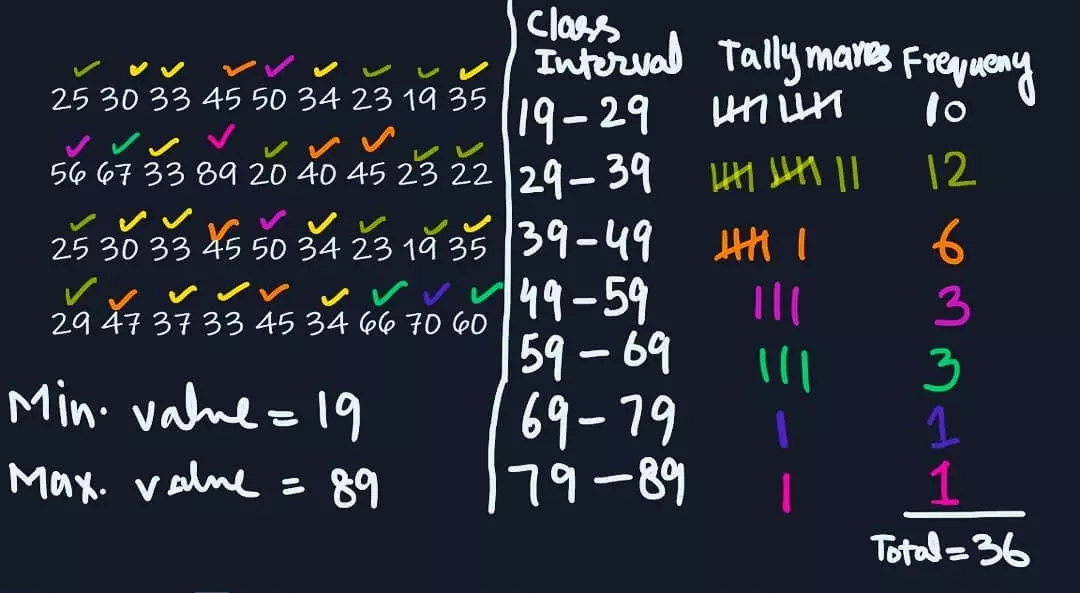 25 30 33 45 50 34 23 19 35
56 67 33 89 20 40 45 23 22
25 30 33 45 50 34 23 19 35
29 47 37 33 45 34 66 70 60
Min. value = 19
Max. value = 89
Class Interval Tally marks Frequeny
19 – 29 10
29 – 39 12
39 – 49 6
49 – 59 3
59 – 69 3
69 – 79 1
79 – 89 1
Total = 36